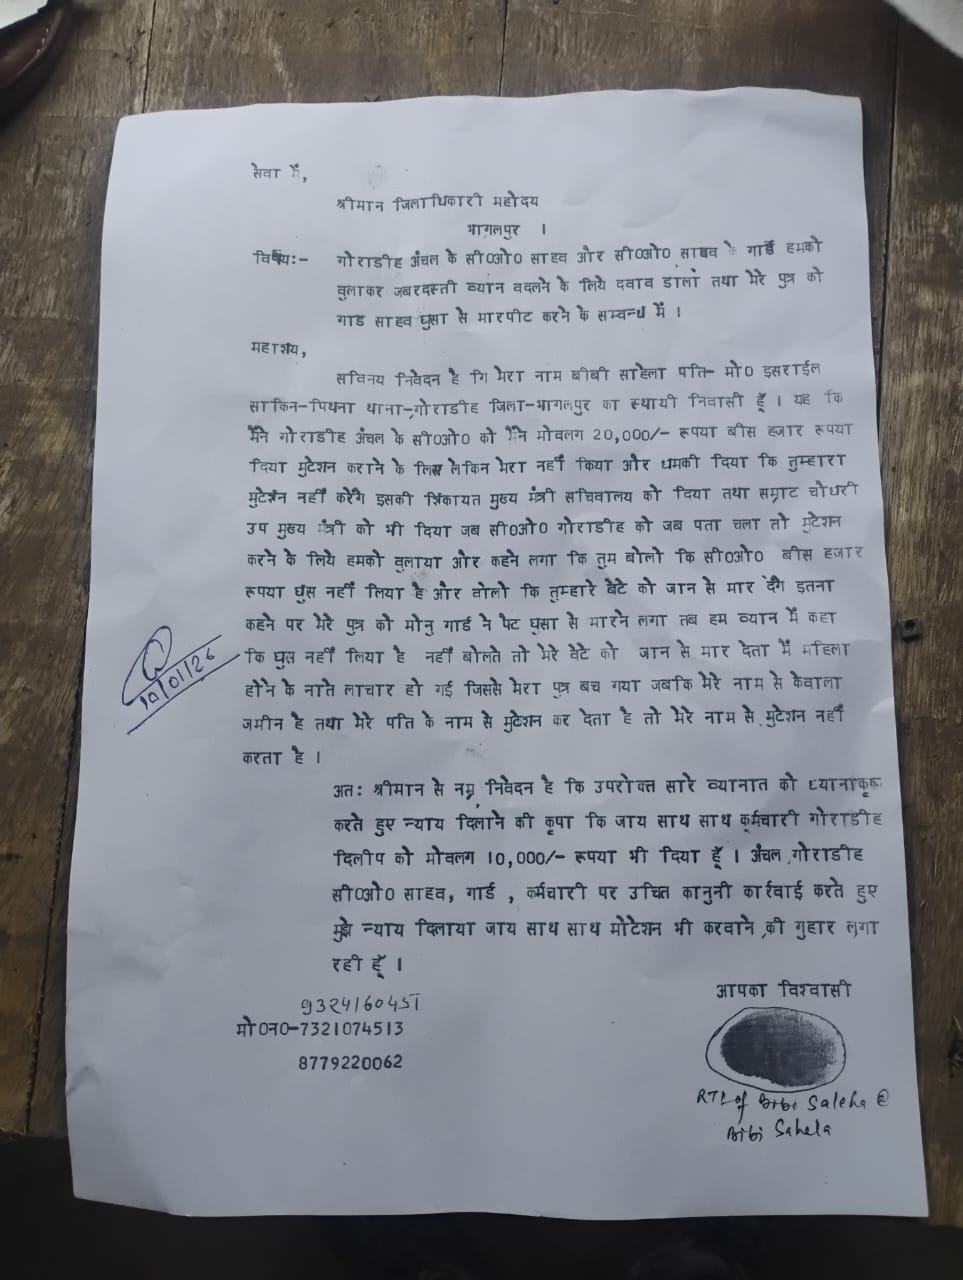 सेवा में,
श्रीमान जिलाधिकारी महोदय
भागलपुर ।
विषय:- गोराडीह अंचल के सी0ओ0 साहव और सी0ओ0 साहव के गार्ड हमको
वुलाकर जबरदस्ती व्यान वदलने के लिये दवाव डाला तथा मेरे पुत्र को
गाड साहव घुसा से मारपीट करने के सम्वन्ध में ।
महाशय,
सविनय निवेदन है गि मेरा नाम बीबी साहेला पति- मो0 इसराईल
साकिन-पिथना थाना-गोराडीह जिला-भागलपुर का स्थायी निवासी हूँ । यह कि
मैंने गोराडीह अंचल के सी0ओ0 को मैंने मोवलग 20,000/- रूपया बीस हजार रूपया
दिया मुटेशन कराने के लिए लेकिन मेरा नहीं किया और धमकी दिया कि तुम्हारा
मुटेशन नहीं करेंगे इसकी शिकायत मुख्य मंत्री सचिवालय को दिया तथा सम्राट चोधरी
उप मुख्य मंत्री को भी दिया जब सी0ओ0 गोराडीह को जब पता चला तो मुटेशन
करने के लिये हमको वुलाया ओर कहने लगा कि तुम बोलो कि सी0ओ0 बीस हजार
रूपया घुस नहीं लिया है और वोलो कि तुम्हारे बेटे को जान से मार देंगे इतना
कहने पर मेरे पुत्र को मोनु गार्ड ने पेट घुसा से मारने लगा तब हम व्यान में कहा
कि घुस नहीं लिया है नहीं बोलते तो मेरे वेटे को जान से मार देता में महिला
होने के नाते लाचार हो गई जिससे मेरा पुत्र बच गया जबकि मेरे नाम से केवाला
जमीन है तथा मेरे पति के नाम से मुटेशन कर देता है तो मेरे नाम से मुटेशन नहीं
करता है ।
अतः श्रीमान से नम्र निवेदन है कि उपरोक्त सारे व्यानात को ध्यानाकृष्
करते हुए न्याय दिलाने की कृपा कि जाय साथ साथ कर्मचारी गोराडीह
दिलीप को मोवलग 10,000/- रूपया भी दिया हूँ । अंचल गोराडीह
सी0ओ0 साहव, गार्ड , कर्मचारी पर उचित कानुनी कार्रवाई करते हुए
मुझे न्याय दिलाया जाय साथ साथ मोटेशन भी करवाने की गुहार लगा
रही हूँ ।
आपका विश्वासी
मो0न0-7321074513
8779220062
RTI of Bibi Saleha @
Bibi Sahela